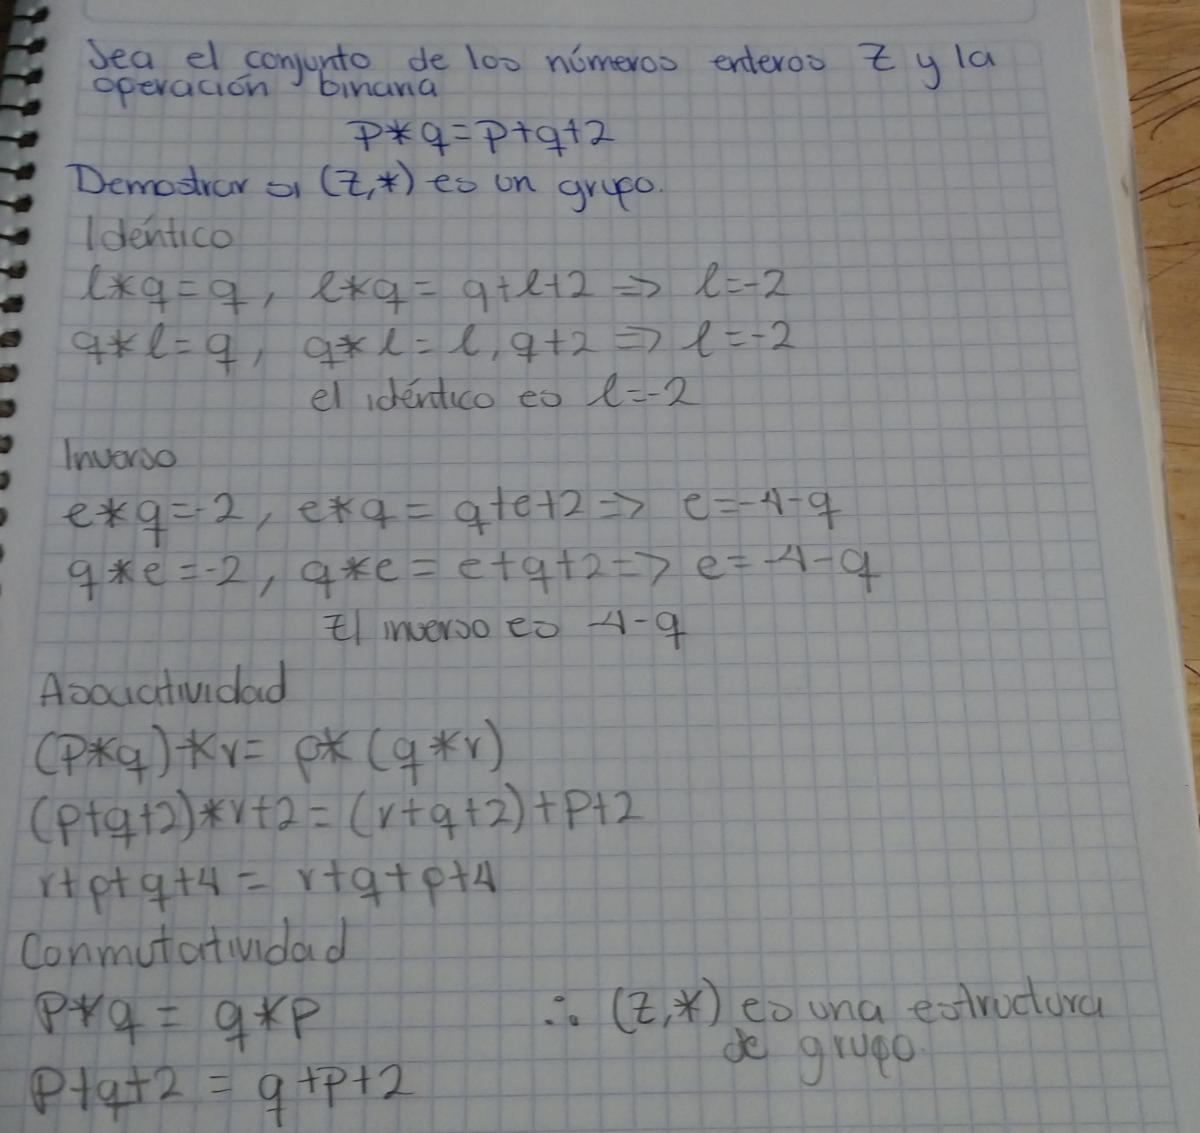 Sea el conjunto de los números enteros Z y la
operación binaria
p*q=p+q+2
Demostrar si (Z,*) es un grupo.
Idéntico
l*q=q, l*q= q+l+2 => l=-2
q*l=q, q*l= l,q+2 => l=-2
el idéntico es l=-2
Inverso
e*q=-2, e*q= q+e+2=> e=-4-q
q*e=-2, q*e= e+q+2=> e=-4-q
El inverso es -4-q
Asociatividad
(p*q)*r= p*(q*r)
(p+q+2)*r+2=(r+q+2)+p+2
r+p+q+4= r+q+p+4
Conmutatividad
p*q= q*p ∴ (Z,*) es una estructura
de grupo.
p+q+2= q+p+2